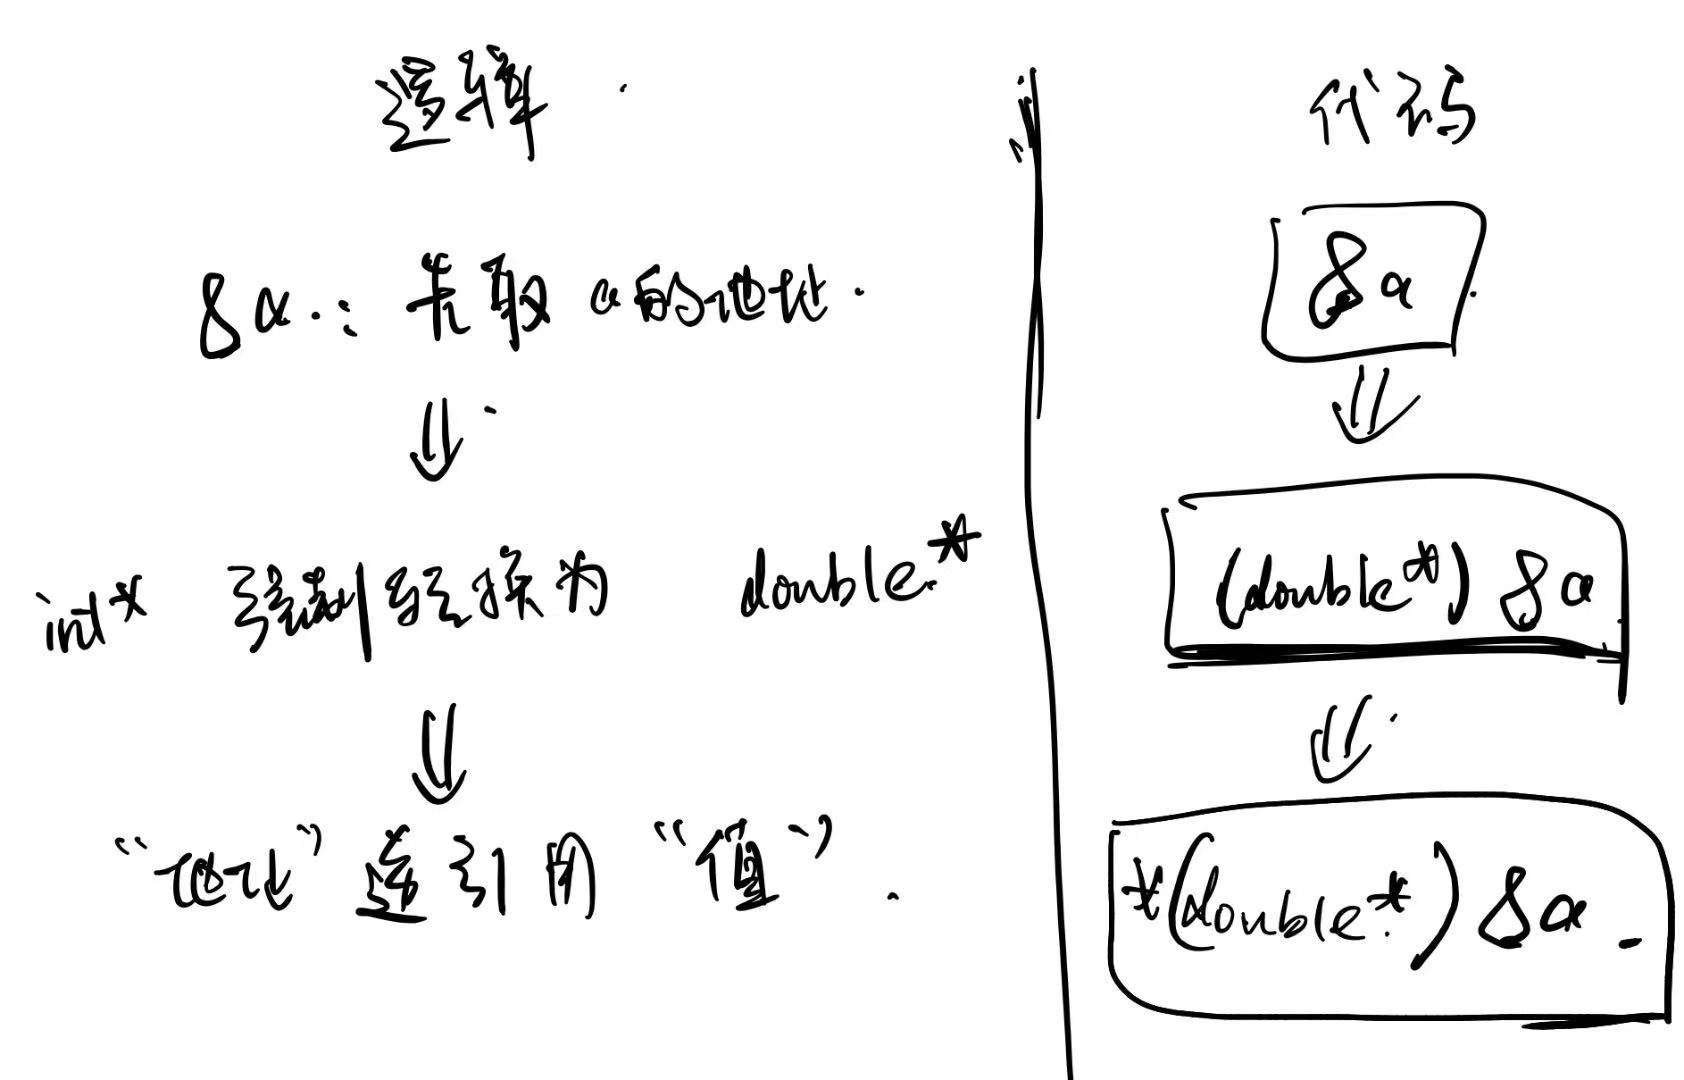 逻辑
&a: 先取 a的地址.
int* 强制转换为 double*
“地址” 引用 “值”.
代码
&a
(double*) &a
*(double*) &a